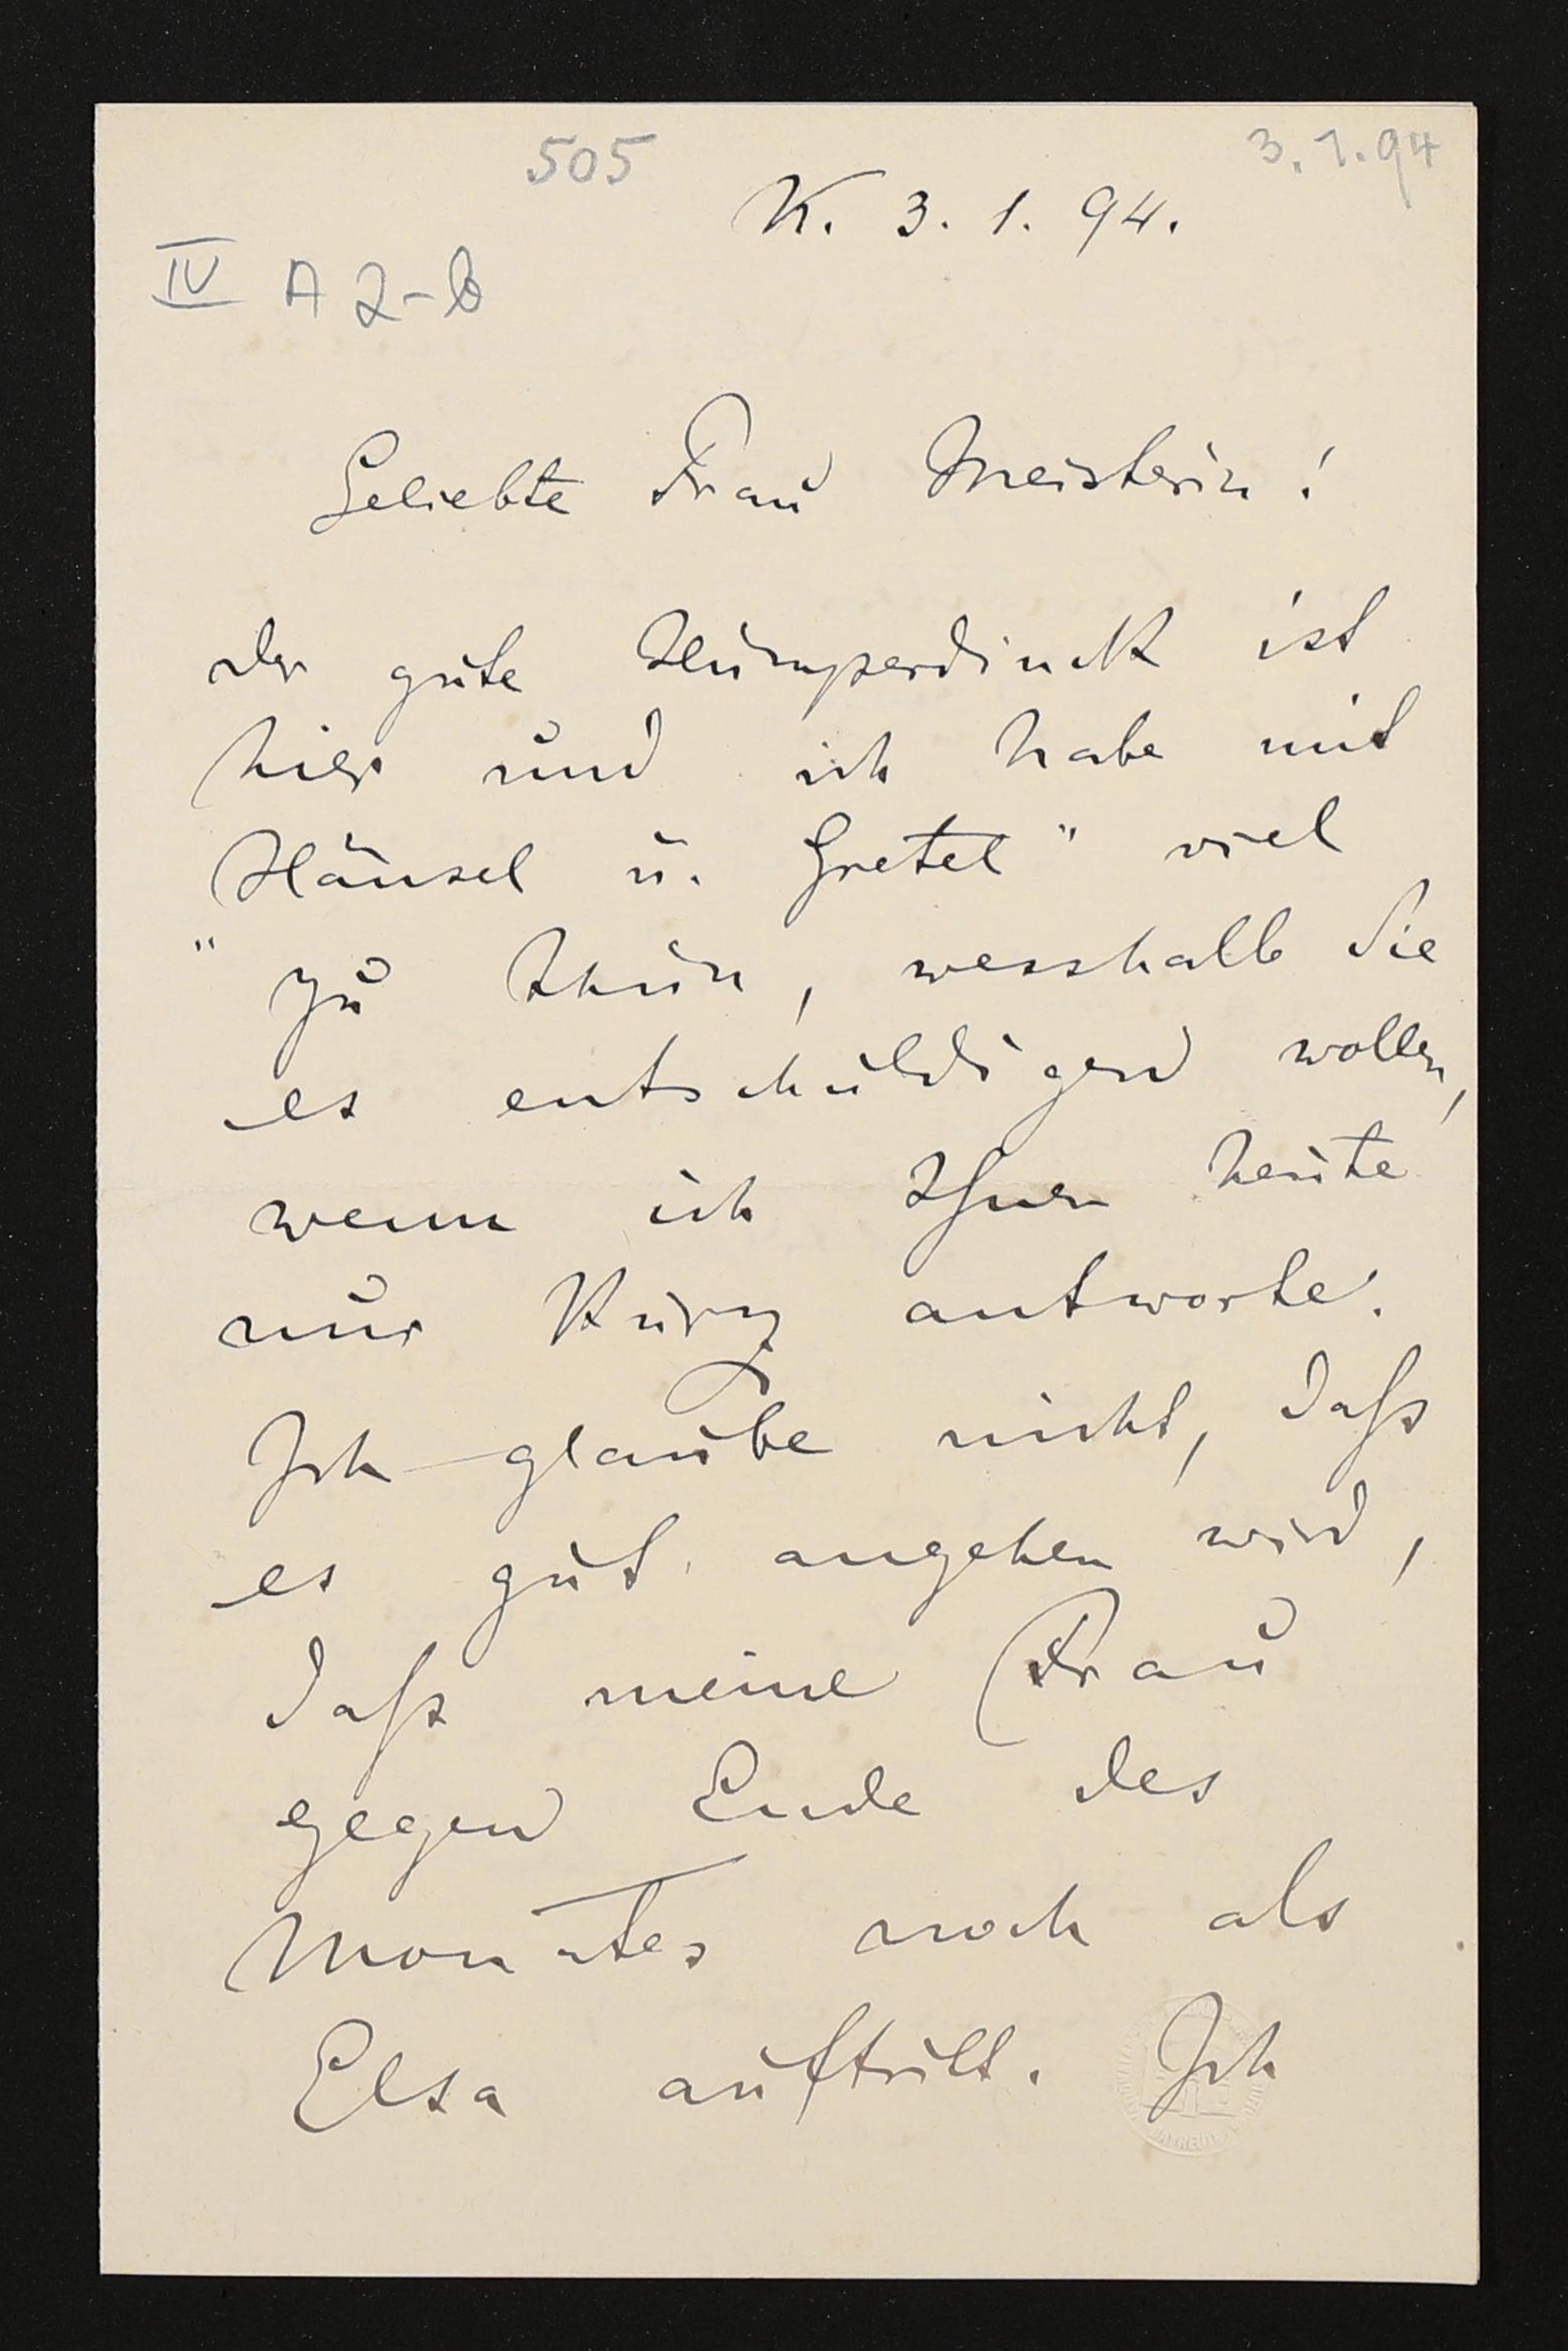 505
3.1.94
K. 3. 1. 94.
IV A 2-b
Geliebte Frau Meisterin!
der gute Humperdinck ist
hier und ich habe mit
„Hänsel u. Gretel" viel
zu thun, wesshalb Sie
es entschuldigen wollen,
wenn ich Ihnen heute
nur kurz antworte.
Ich glaube nicht, daſs
es gut angehen wird,
daſs meine Frau
gegen Ende des
Monates noch als
Elsa auftritt. Ich